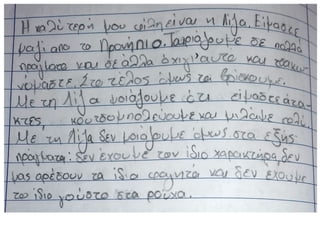 Η καλύτερή μου φίλη είναι η Λίζα. Είμαστε
μαζί από το Προνήπιο. Ταιριάζουμε σε πολλά
πράγματα και σε άλλα όχι γι'αυτό και τσακω-
νόμαστε. Στο τέλος όμως τα βρίσκουμε.
Με τη Λίζα μοιάζουμε ότι είμαστε άτα-
κτες, κουτσομπολεύουμε και μιλάμε πολύ.
Με τη Λίζα δεν μοιάζουμε όμως στα εξής
πράγματα: δεν έχουμε τον ίδιο χαρακτήρα, δεν
μας αρέσουν τα ίδια φαγητά και δεν έχουμε
το ίδιο γούστο στα ρούχα.